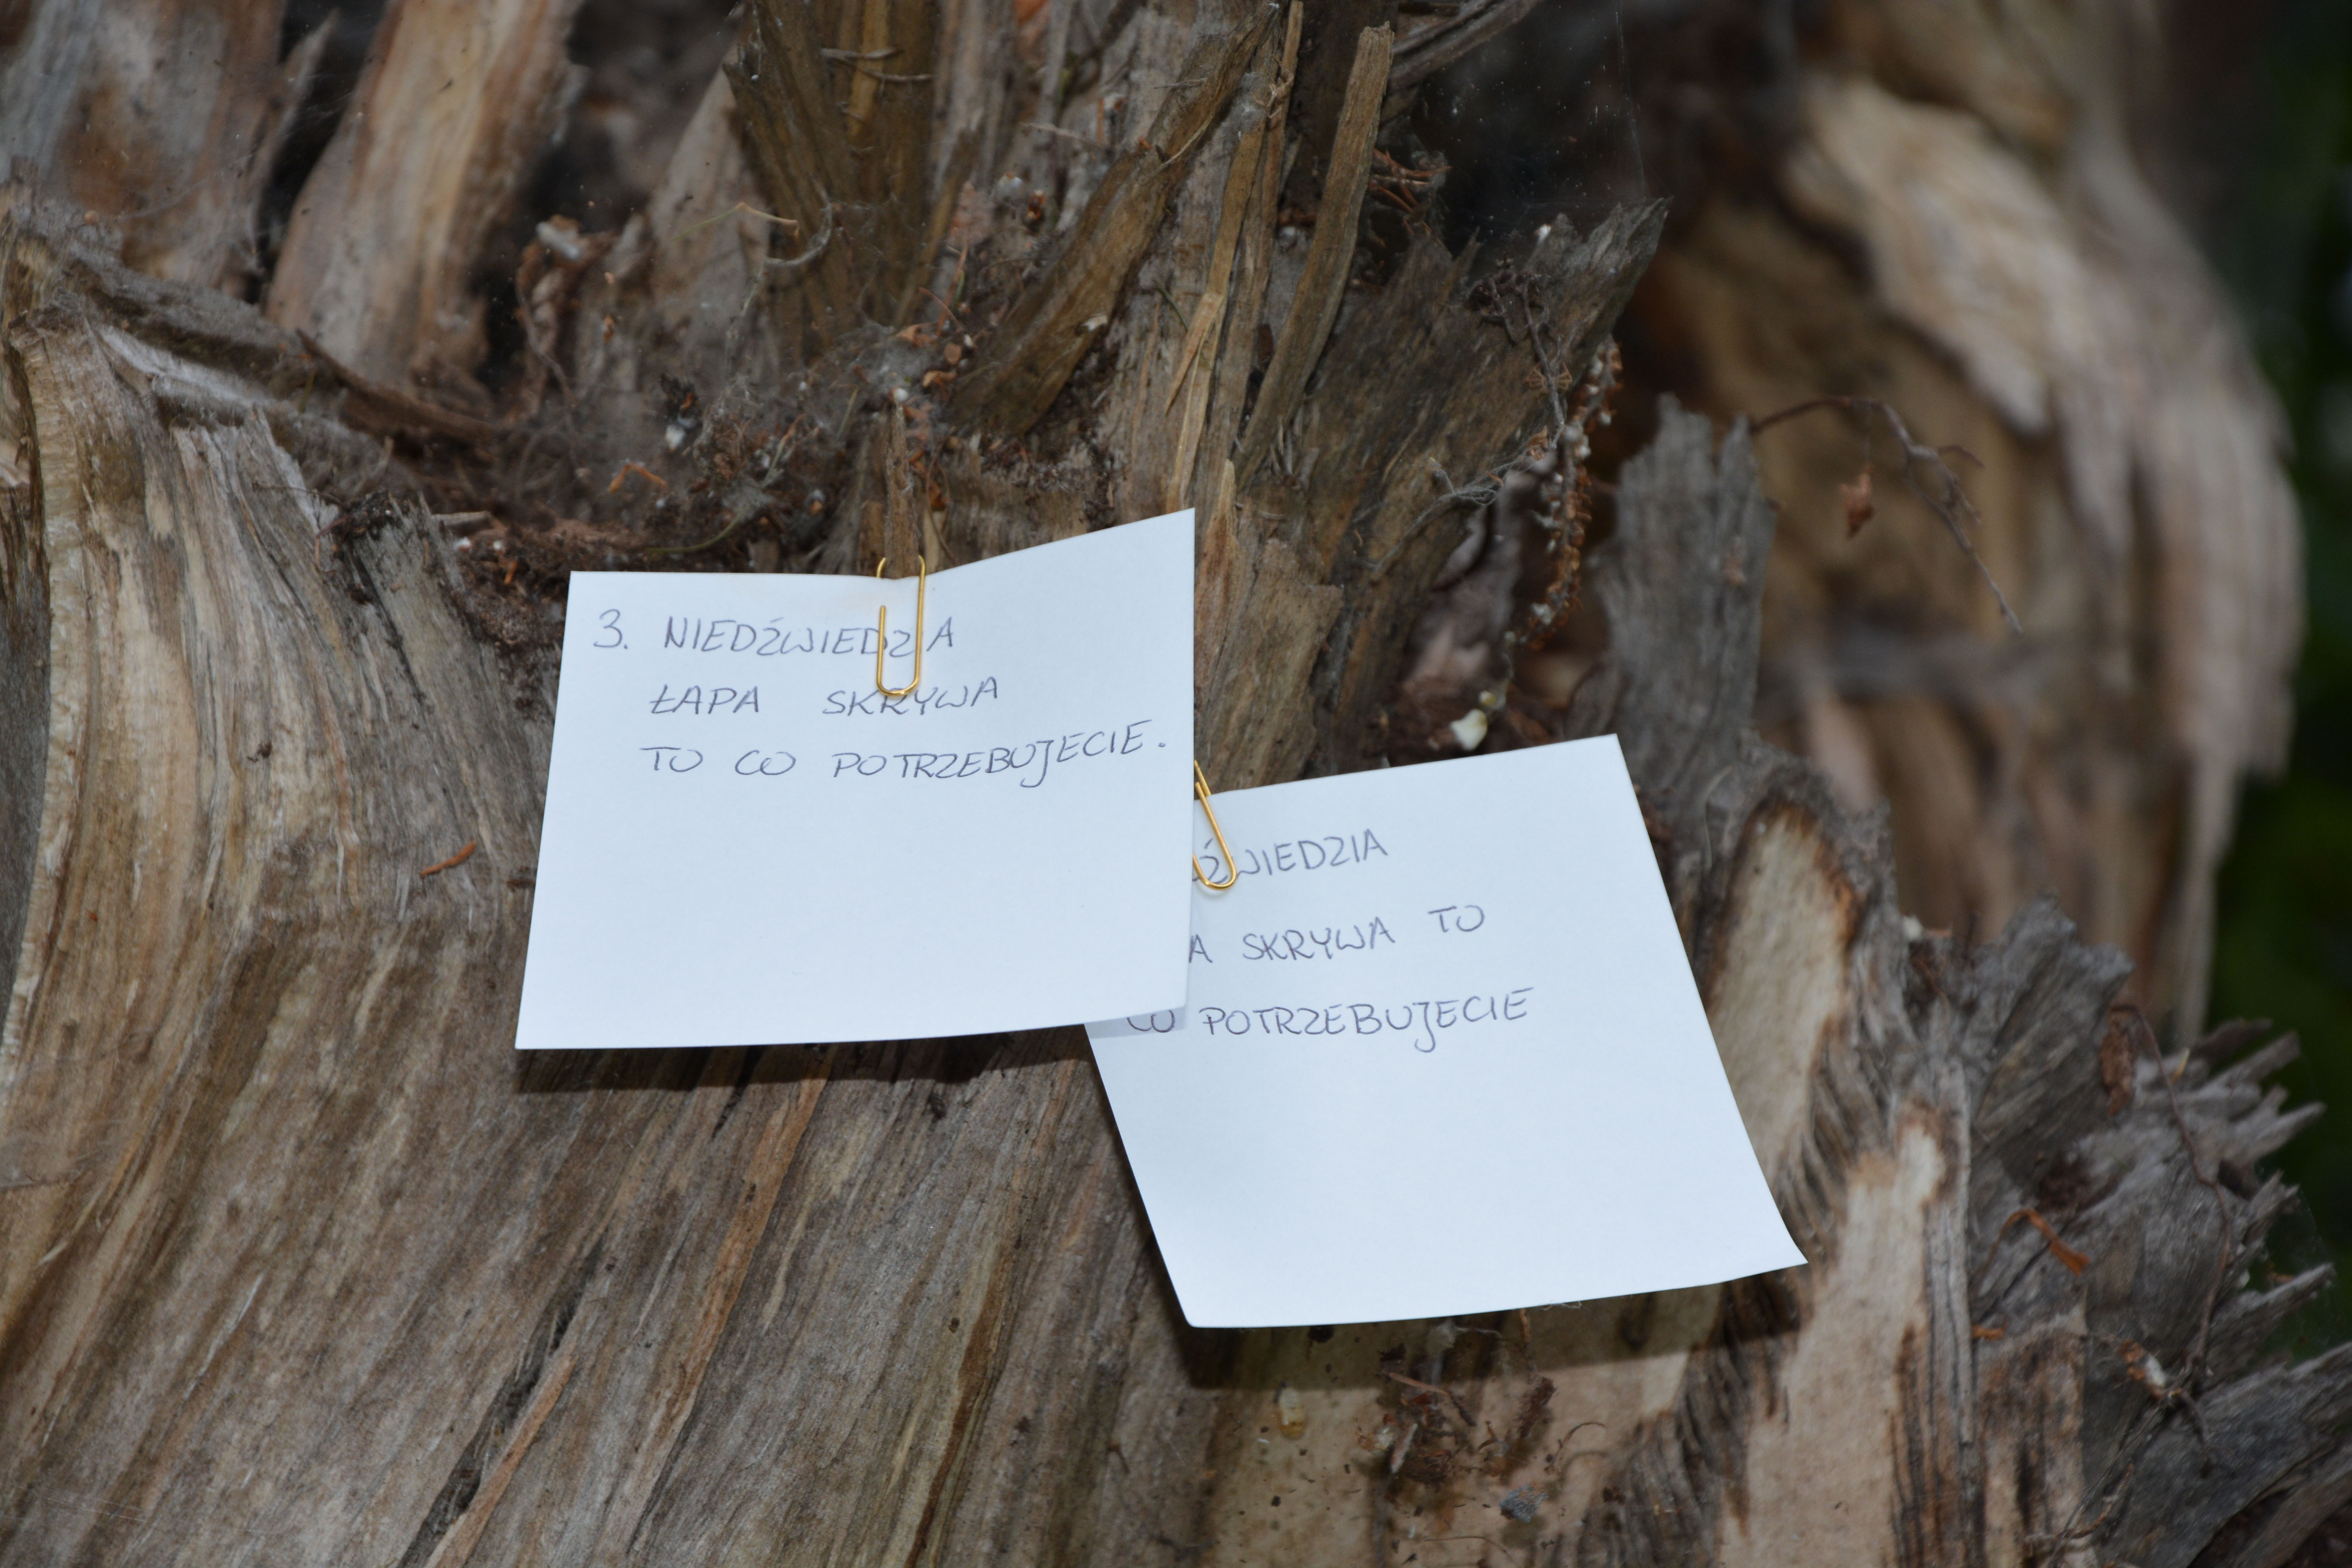 3. NIEDŹWIEDZIA
ŁAPA SKRYWA
TO CO POTRZEBUJECIE.
A SKRYWA TO
CO POTRZEBUJECIE